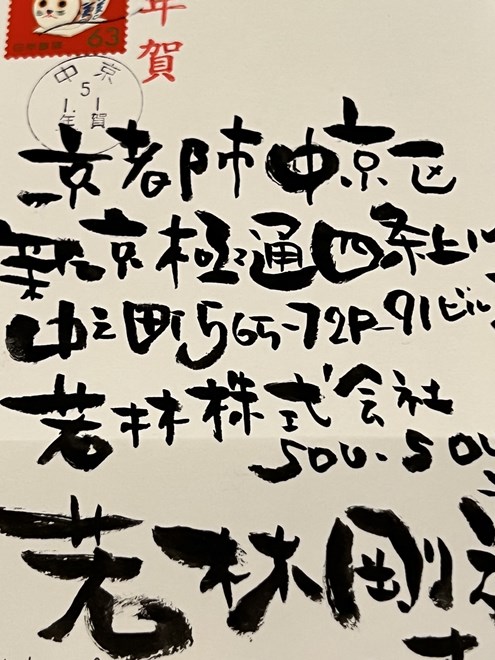 年賀
63
日本郵便
中京
5
1. 1
年賀
京都市中京区
新京極通四条上ル
中之町565-72P-91ビル
若林株式会社
SOU・SOU
若林剛之